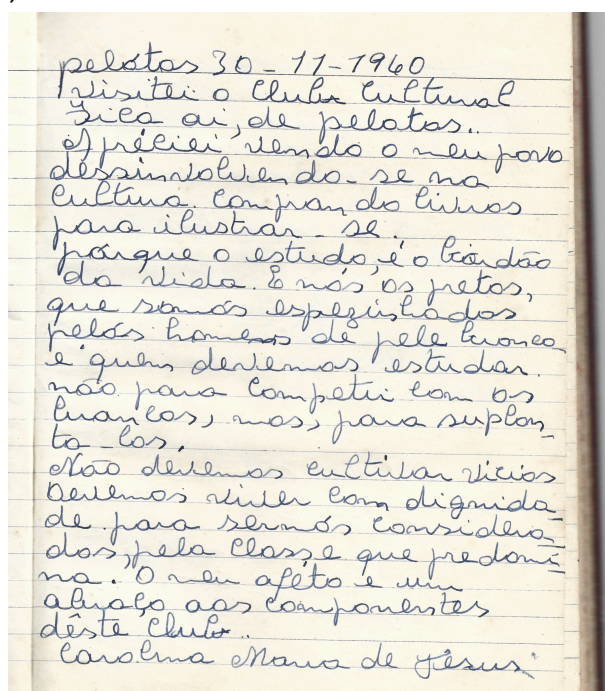 pelótas 30-11-1960
Visitei o Clube Cultural
Fica ai, de pelotas..
Apréciei vendo o meu povo
dessinvolvendo-se na
Cultura. Comprando livros
para ilustrar-se.
pórque o estudo, é o bórdão
da vida. E nós os pretos,
que somós espezinhados
pelós homens de pele branca
e' quem devemos estudar.
não para Competir com os
brancos, mas, para suplan-
ta-los.
Não devemos cultivar vicios
Devemos viver com dignida-
de para sermós considera-
dos, pela Classe que predomi-
na. O meu aféto e um
abraço aos componentes
dêste Clube..
Carolina Maria de Jêsus